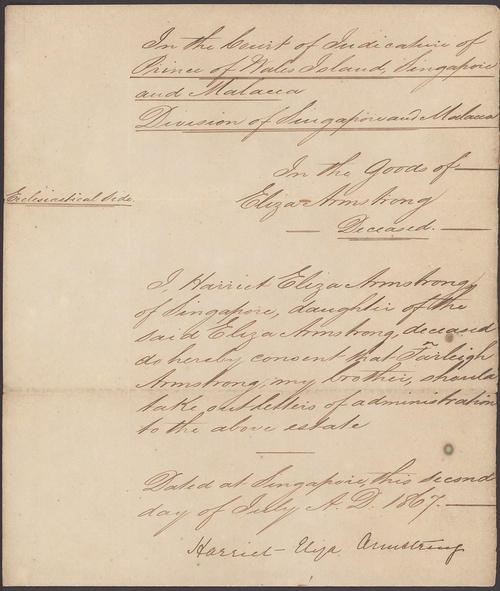 In the Court of Judicature of
Prince of Wales Island, Singapore
and Malacca
Division of Singapore and Malacca
In the Goods of
Eliza Armstrong
Deceased.
Ecclesiastical Side.
I Harriet Eliza Armstrong,
of Singapore, daughter of the
said Eliza Armstrong, deceased
do hereby consent that Farleigh
Armstrong, my brother, should
take out letters of administration
to the above estate
Dated at Singapore, this second
day of July A.D. 1867.
Harriet Eliza Armstrong